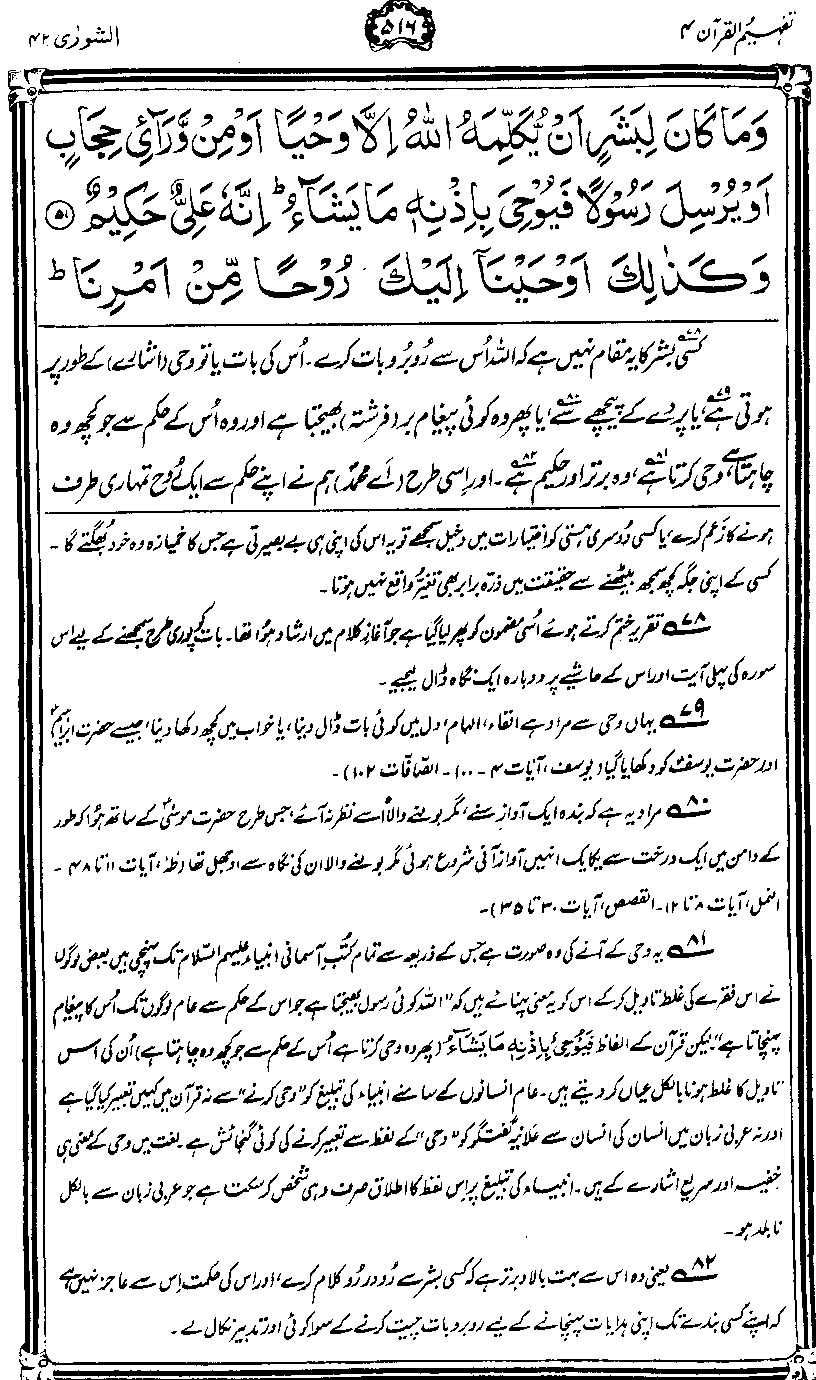 تفہیم القرآن ۴
۵۱۶
الشوریٰ ۴۲
وَمَا كَانَ لِبَشَرٍ اَنْ يُّكَلِّمَهُ اللّٰهُ اِلَّا وَحْيًا اَوْ مِنْ وَّرَآئِ حِجَابٍ
اَوْ يُرْسِلَ رَسُوْلًا فَيُوْحِيَ بِاِذْنِهٖ مَا يَشَآءُ ؕ اِنَّهٗ عَلِيٌّ حَكِيْمٌ ﴿۵۱﴾
وَكَذٰلِكَ اَوْحَيْنَآ اِلَيْكَ رُوْحًا مِّنْ اَمْرِنَا ؕ
کسی۷۸ بشر کا یہ مقام نہیں ہے کہ اللہ اُس سے رُوبرو بات کرے۔ اُس کی بات یا تو وحی (اشارے) کے طور پر
ہوتی ہے۷۹، یا پردے کے پیچھے سے۸۰، یا پھر وہ کوئی پیغام بر (فرشتہ) بھیجتا ہے اور وہ اُس کے حکم سے جو کچھ وہ
چاہتا ہے، وحی کرتا ہے۸۱، وہ برتر اور حکیم ہے۸۲۔ اور اِسی طرح (اَے محمدؐ) ہم نے اپنے حکم سے ایک رُوح تمہاری طرف
ہونے کا زعم کرے، یا کسی دُوسری ہستی کو اختیارات میں دخیل سمجھے تو یہ اس کی اپنی ہی بے بصیرتی ہے جس کا خمیازہ وہ خود بُھگتے گا۔
کسی کے اپنی جگہ کچھ سمجھ بیٹھنے سے حقیقت میں ذرّہ برابر بھی تغیُّر واقع نہیں ہوتا۔
۷۸ تقریر ختم کرتے ہوئے اُسی مضمون کو پھر لیا گیا ہے جو آغازِ کلام میں ارشاد ہُوا تھا۔ بات کو پوری طرح سمجھنے کے لیے اس
سورہ کی پہلی آیت اور اس کے حاشیے پر دوبارہ ایک نگاہ ڈال لیجیے۔
۷۹ یہاں وحی سے مراد ہے القاء، الہام، دل میں کوئی بات ڈال دینا، یا خواب میں کچھ دکھا دینا، جیسے حضرت ابراہیمؑ
اور حضرت یوسفؑ کو دکھایا گیا (یوسف، آیات ۴ - ۱۰۰۔ الصافّات ۱۰۲)۔
۸۰ مراد یہ ہے کہ بندہ ایک آواز سنے، مگر بولنے والا اُسے نظر نہ آئے، جس طرح حضرت موسیٰؑ کے ساتھ ہُوا کہ طور
کے دامن میں ایک درخت سے یکایک انہیں آواز آنی شروع ہوئی مگر بولنے والا ان کی نگاہ سے اوجھل تھا (طٰہٰ، آیات ۱۱ تا ۴۸۔
النمل، آیات ۸ تا ۱۲۔ القصص، آیات ۳۰ تا ۳۵)۔
۸۱ یہ وحی کے آنے کی وہ صورت ہے جس کے ذریعہ سے تمام کُتبِ آسمانی انبیاء علیہم السّلام تک پہنچی ہیں۔ بعض لوگوں
نے اس فقرے کی غلط تاویل کر کے اس کو یہ معنی پہنائے ہیں کہ "اللہ کوئی رسول بھیجتا ہے جو اس کے حکم سے عام لوگوں تک اُس کا پیغام
پہنچاتا ہے"۔ لیکن قرآن کے الفاظ فَيُوْحِيَ بِاِذْنِهٖ مَا يَشَآءُ (پھر وہ وحی کرتا ہے اُس کے حکم سے جو کچھ وہ چاہتا ہے) اُن کی اس
تاویل کا غلط ہونا بالکل عیاں کر دیتے ہیں۔ عام انسانوں کے سامنے انبیاء کی تبلیغ کو "وحی کرنے" سے نہ قرآن میں کہیں تعبیر کیا گیا ہے
اور نہ عربی زبان میں انسان کی انسان سے علانیہ گفتگو کو "وحی" کے لفظ سے تعبیر کرنے کی کوئی گنجائش ہے۔ لغت میں وحی کے معنی ہی
خفیہ اور سریع اشارے کے ہیں۔ انبیاء کی تبلیغ پر اِس لفظ کا اطلاق صرف وہی شخص کر سکتا ہے جو عربی زبان سے بالکل
نابلد ہو۔
۸۲ یعنی وہ اس سے بہت بالا و برتر ہے کہ کسی بشر سے رُو در رُو کلام کرے، اور اس کی حکمت اِس سے عاجز نہیں ہے
کہ اپنے کسی بندے تک اپنی ہدایات پہنچانے کے لیے روبرو بات چیت کرنے کے سوا کوئی اور تدبیر نکال لے۔